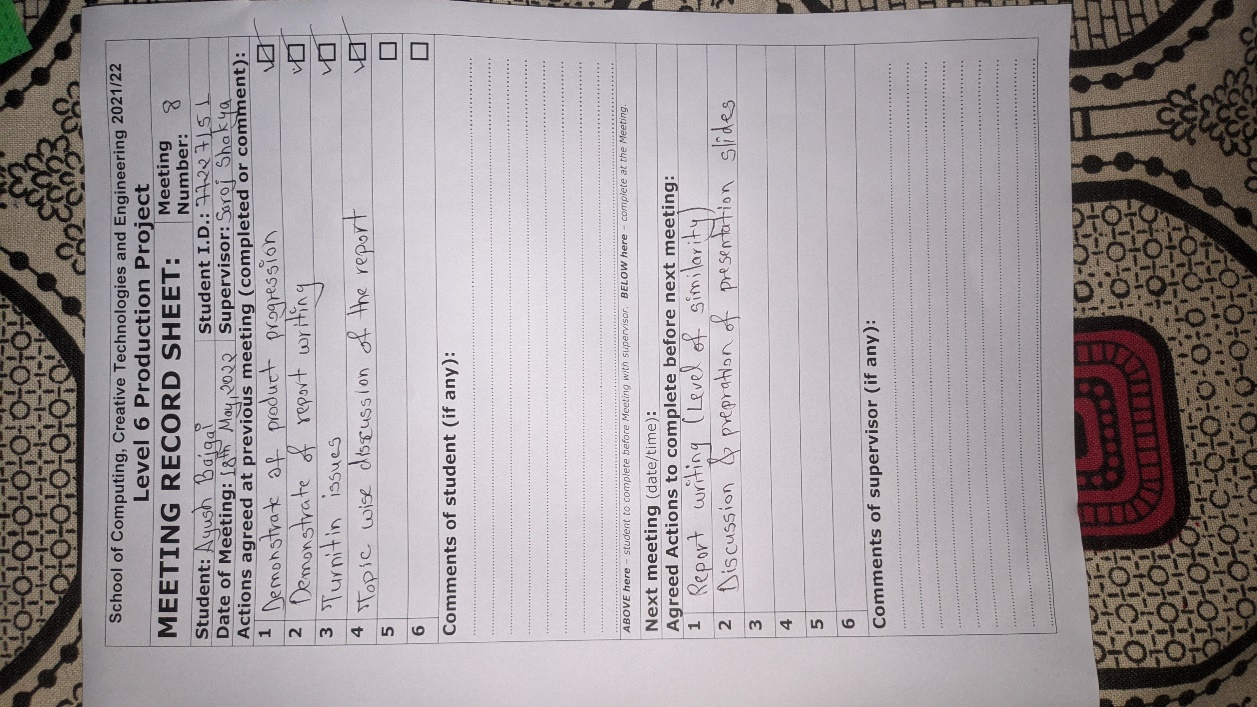 School of Computing, Creative Technologies and Engineering 2021/22
Level 6 Production Project
MEETING RECORD SHEET: Meeting Number: 8
Student: Ayush Bajgai Student I.D.: 77227151
Date of Meeting: 18th May, 2022 Supervisor: Saroj Shakya
Actions agreed at previous meeting (completed or comment):
1 Demonstrate of product progression
2 Demonstrate of report writing
3 Turnitin issues
4 Topic wise discussion of the report
5
6
Comments of student (if any):
ABOVE here – student to complete before Meeting with supervisor. BELOW here – complete at the Meeting.
Next meeting (date/time):
Agreed Actions to complete before next meeting:
1 Report writing (Level of similarity)
2 Discussion & prepration of presentation slides
3
4
5
6
Comments of supervisor (if any):